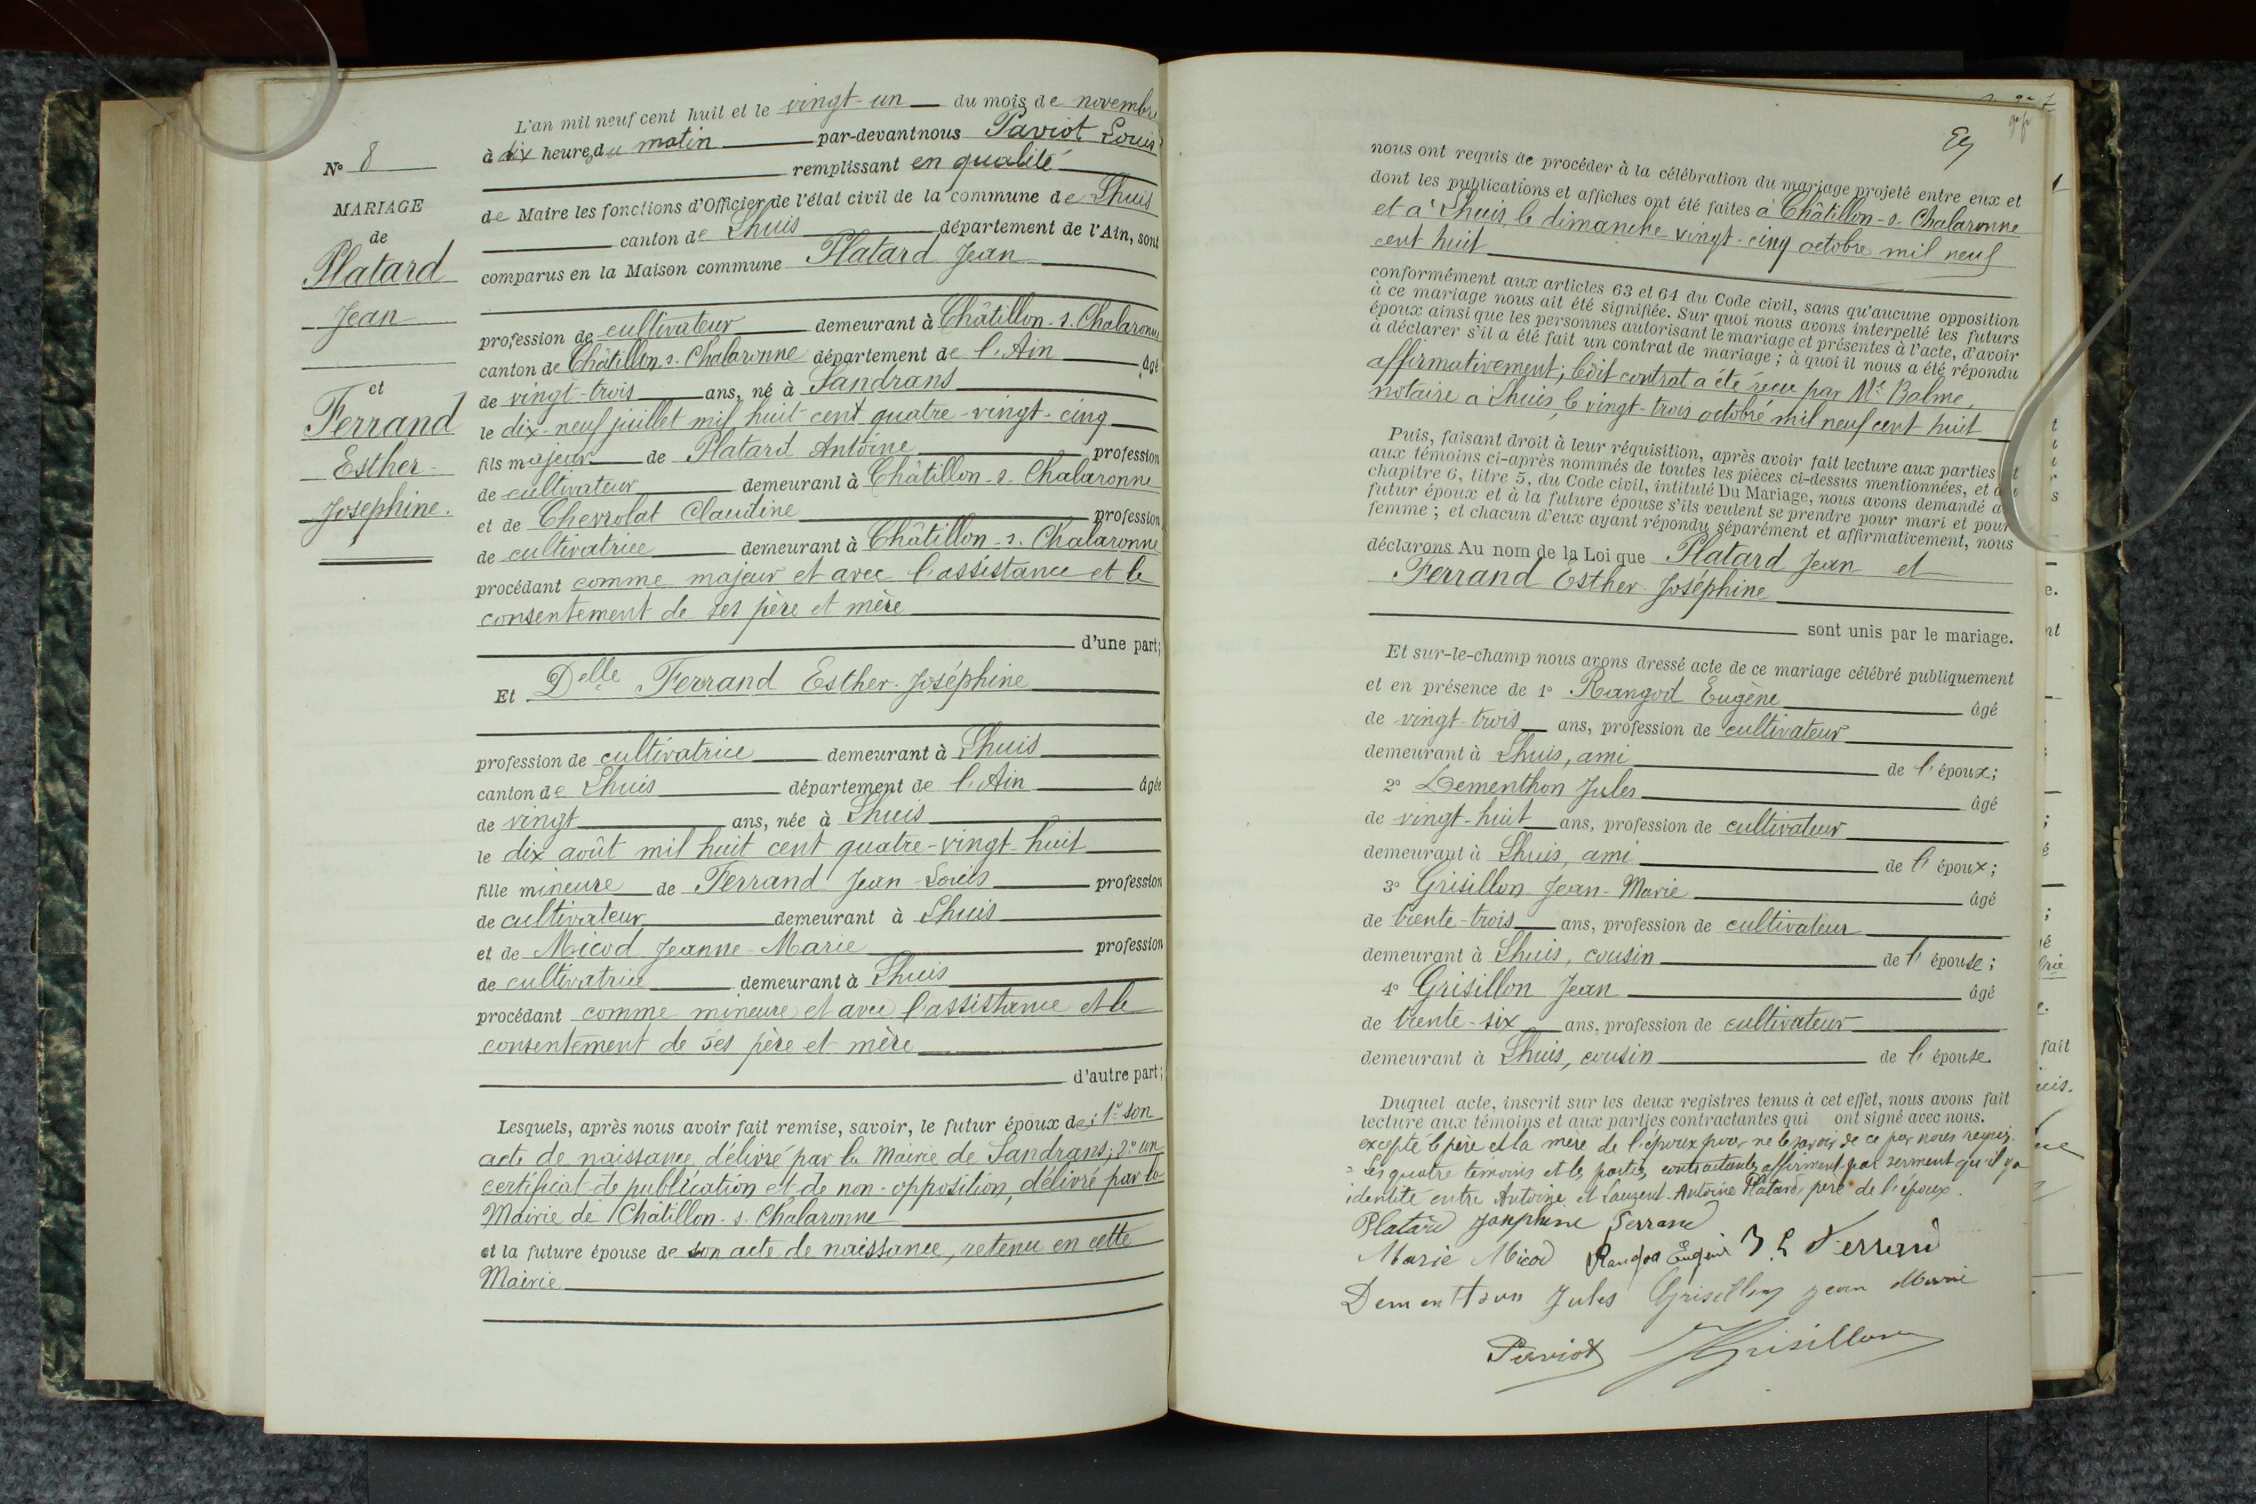 N° 8
MARIAGE
de
Platard
Jean
et
Ferrand
Esther-
Joséphine.
L'an mil neuf cent huit et le vingt-un du mois de novembre
à dix heures du matin par-devant nous Paviot Louis
remplissant en qualité
de Maire les fonctions d'Officier de l'état civil de la commune de Lhuis
canton de Lhuis département de l'Ain, sont
comparus en la Maison commune Platard Jean
profession de cultivateur demeurant à Châtillon-s-Chalaronne
canton de Châtillon-s-Chalaronne département de l'Ain âgé
de vingt-trois ans, né à Sandrans
le dix-neuf juillet mil huit-cent quatre-vingt-cinq
fils majeur de Platard Antoine profession
de cultivateur demeurant à Châtillon-s-Chalaronne
et de Chevrolat Claudine profession
de cultivatrice demeurant à Châtillon-s-Chalaronne
procédant comme majeur et avec l'assistance et le
consentement de ses père et mère
d'une part;
Et Delle Ferrand Esther-Joséphine
profession de cultivatrice demeurant à Lhuis
canton de Lhuis département de l'Ain âgée
de vingt ans, née à Lhuis
le dix août mil huit cent quatre-vingt-huit
fille mineure de Ferrand Jean-Louis profession
de cultivateur demeurant à Lhuis
et de Micod Jeanne-Marie profession
de cultivatrice demeurant à Lhuis
procédant comme mineure et avec l'assistance et le
consentement de ses père et mère
d'autre part;
Lesquels, après nous avoir fait remise, savoir, le futur époux de: 1° son
acte de naissance délivré par la Mairie de Sandrans; 2° un
certificat de publication et de non-opposition, délivré par la
Mairie de Châtillon-s-Chalaronne
et la future épouse de son acte de naissance, retenu en cette
Mairie
nous ont requis de procéder à la célébration du mariage projeté entre eux et
dont les publications et affiches ont été faites à Châtillon-s-Chalaronne
et à Lhuis, le dimanche vingt-cinq octobre mil neuf
cent huit
conformément aux articles 63 et 64 du Code civil, sans qu'aucune opposition
à ce mariage nous ait été signifiée. Sur quoi nous avons interpellé les futurs
époux ainsi que les personnes autorisant le mariage et présentes à l'acte, d'avoir
à déclarer s'il a été fait un contrat de mariage; à quoi il nous a été répondu
affirmativement; ledit contrat a été reçu par Me Balme,
notaire à Lhuis, le vingt-trois octobre mil neuf cent huit
Puis, faisant droit à leur réquisition, après avoir fait lecture aux parties et
aux témoins ci-après nommés de toutes les pièces ci-dessus mentionnées, et du
chapitre 6, titre 5, du Code civil, intitulé Du Mariage, nous avons demandé au
futur époux et à la future épouse s'ils veulent se prendre pour mari et pour
femme; et chacun d'eux ayant répondu séparément et affirmativement, nous
déclarons Au nom de la Loi que Platard Jean et
Ferrand Esther-Joséphine
sont unis par le mariage.
Et sur-le-champ nous avons dressé acte de ce mariage célébré publiquement
et en présence de 1° Rangod Eugène âgé
de vingt-trois ans, profession de cultivateur
demeurant à Lhuis, ami de l'époux;
2° Dementhon Jules âgé
de vingt-huit ans, profession de cultivateur
demeurant à Lhuis, ami de l'époux;
3° Grisillon Jean-Marie âgé
de trente-trois ans, profession de cultivateur
demeurant à Lhuis, cousin de l'épouse;
4° Grisillon Jean âgé
de trente-six ans, profession de cultivateur
demeurant à Lhuis, cousin de l'épouse.
Duquel acte, inscrit sur les deux registres tenus à cet effet, nous avons fait
lecture aux témoins et aux parties contractantes qui ont signé avec nous.
excepté le père et la mère de l'époux pour ne le savoir de ce par nous requis.
= les quatre témoins et les parties contractantes affirment par serment qu'il y a
identité entre Antoine et Laurent-Antoine Platard père de l'époux.
Platard Josephine Ferrand
Marie Micod Rangod Eugène J L Ferrand
Dementhon Jules Grisillon Jean Marie
Paviot JGrisillon